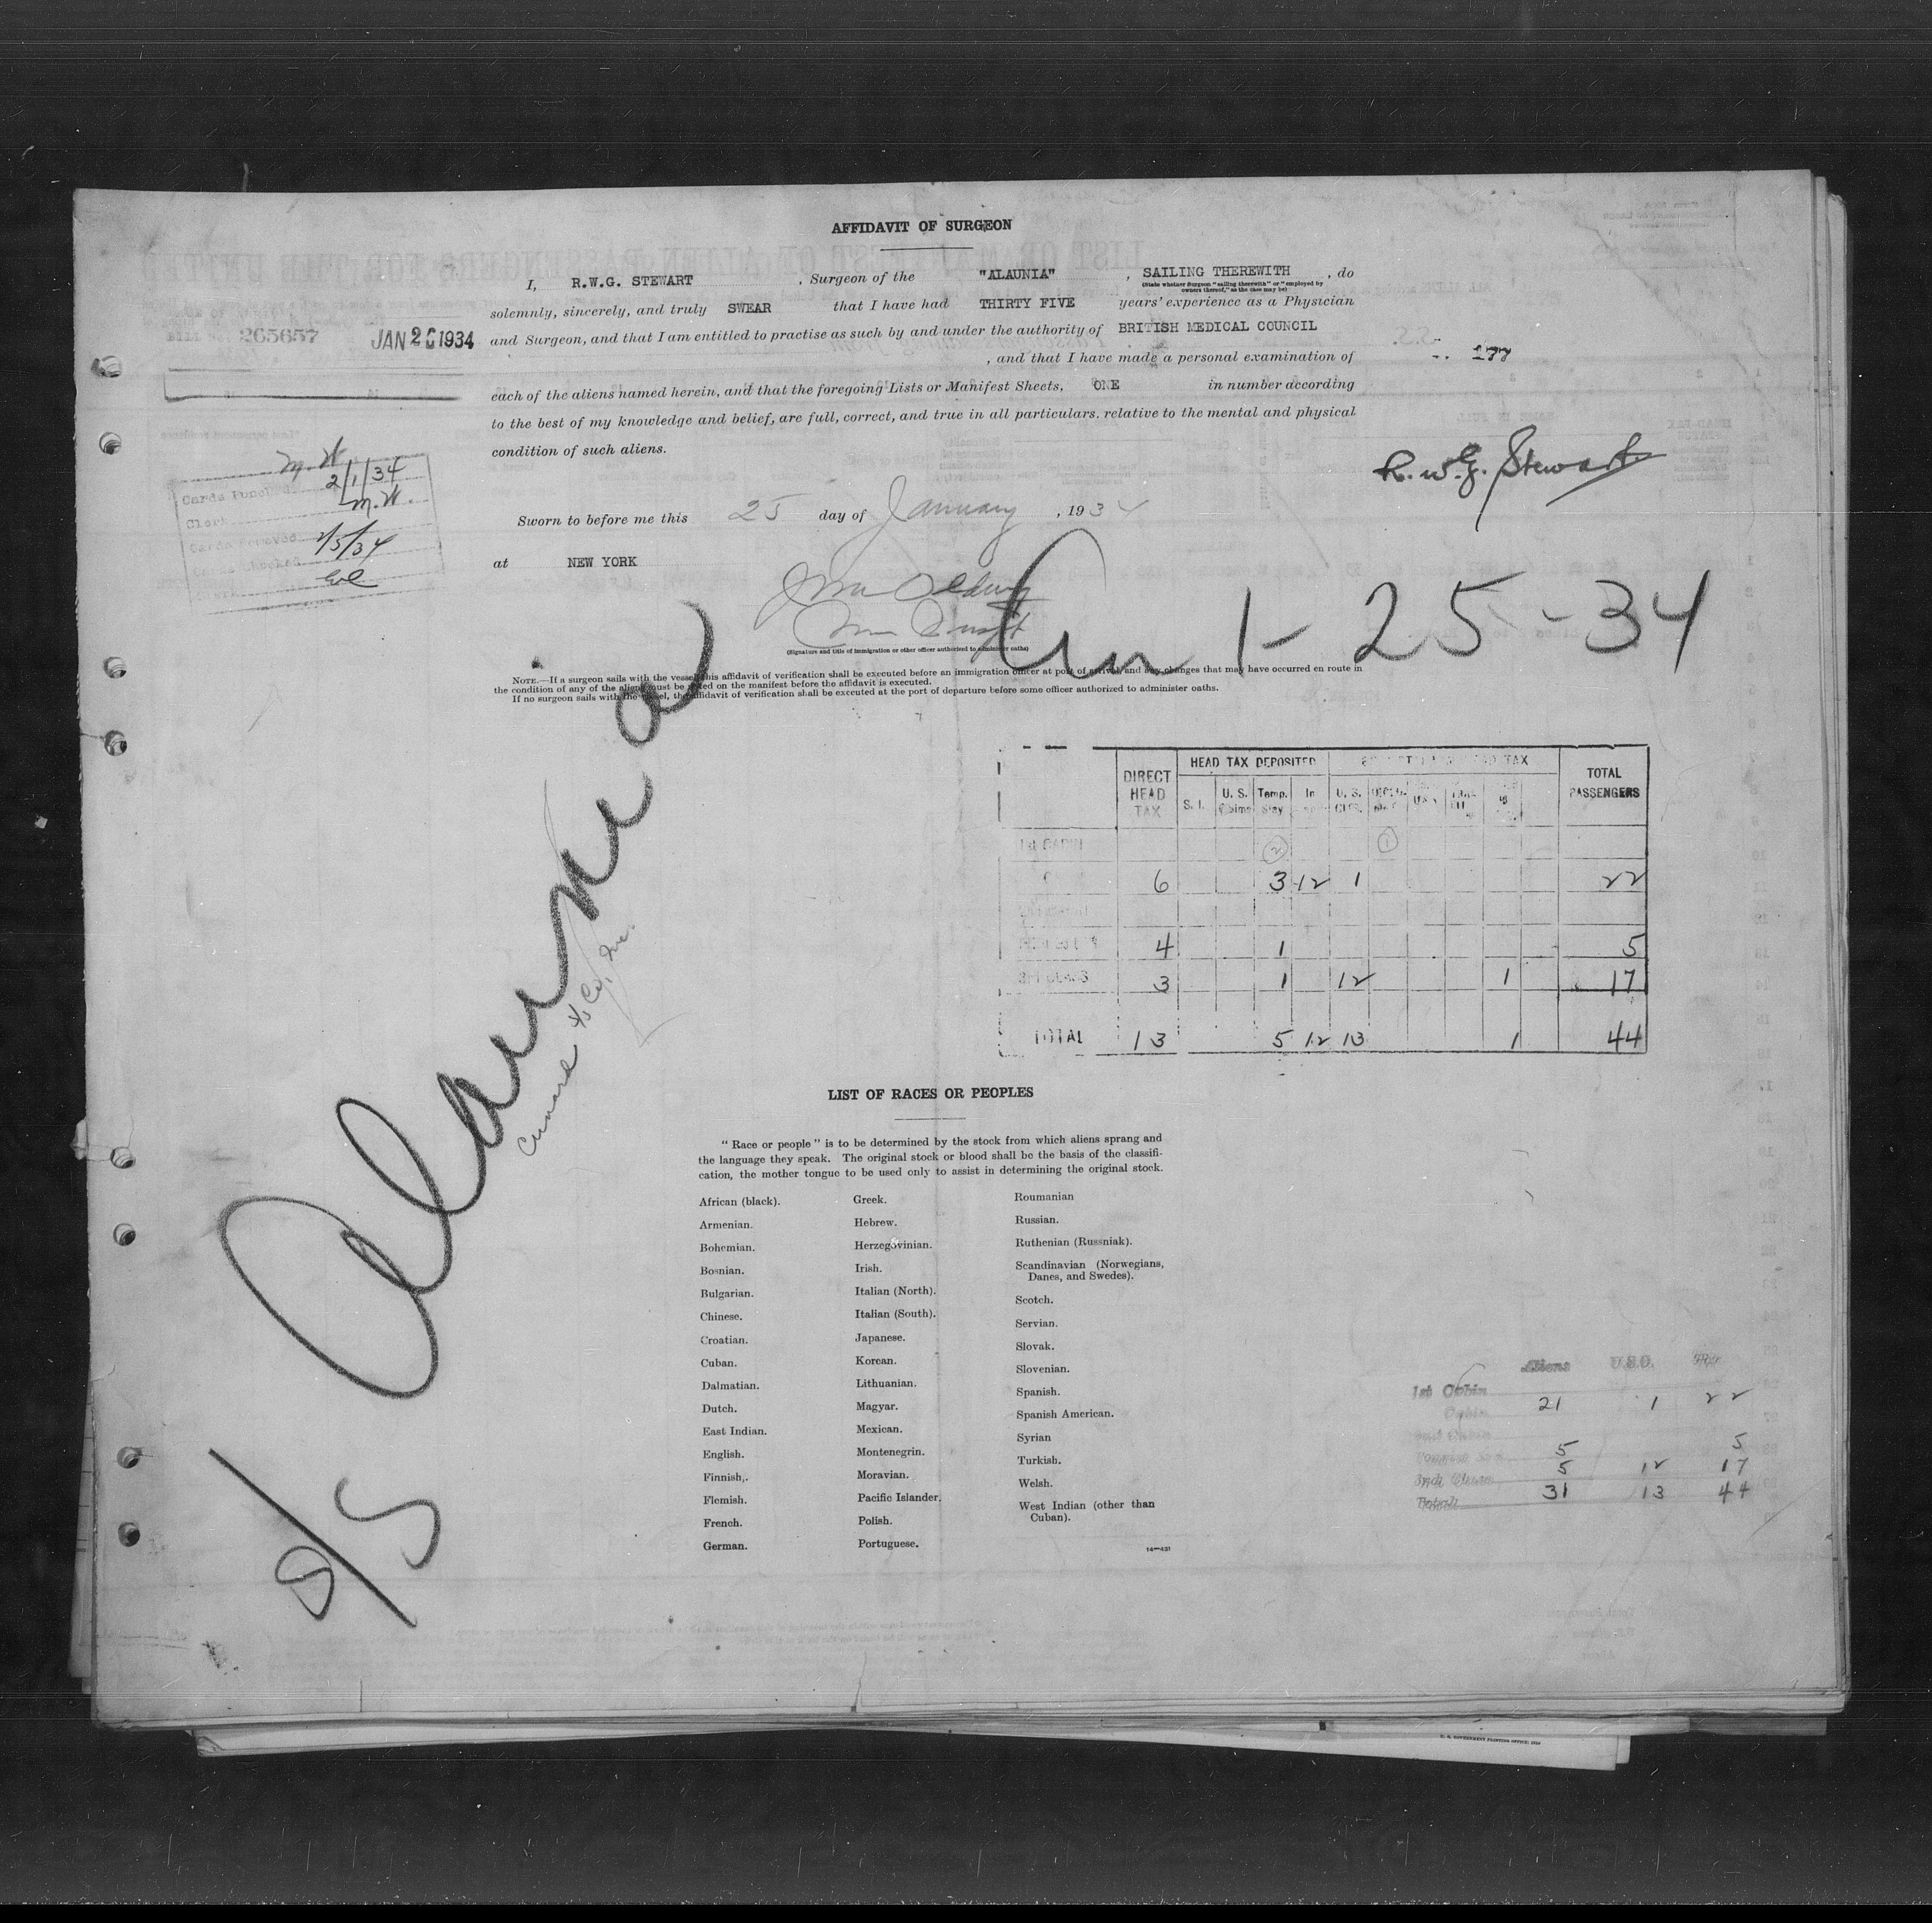 AFFIDAVIT OF SURGEON
I, R.W.G. STEWART, Surgeon of the "ALAUNIA", SAILING THEREWITH, do
(State whether Surgeon "sailing therewith" or "employed by
owners thereof," as the case may be)
solemnly, sincerely, and truly SWEAR that I have had THIRTY FIVE years' experience as a Physician
and Surgeon, and that I am entitled to practise as such by and under the authority of BRITISH MEDICAL COUNCIL
265657 JAN 26 1934
, and that I have made a personal examination of
177
each of the aliens named herein, and that the foregoing Lists or Manifest Sheets, ONE in number according
to the best of my knowledge and belief, are full, correct, and true in all particulars, relative to the mental and physical
condition of such aliens.
R.W.G. Stewart.
M.W.
Cards Punched 2/1/34
Clerk M.W.
2/5/34
Sworn to before me this 25 day of January, 1934
at NEW YORK
(Signature and title of immigration or other officer authorized to administer oaths)
1-25-34
NOTE.—If a surgeon sails with the vessel, this affidavit of verification shall be executed before an immigration officer at port of arrival, and any changes that may have occurred en route in
the condition of any of the aliens must be noted on the manifest before the affidavit is executed.
If no surgeon sails with the vessel, the affidavit of verification shall be executed at the port of departure before some officer authorized to administer oaths.
S/S Alaunia
Cunard S/S Co, Inc.
DIRECT HEAD TAX HEAD TAX DEPOSITED TAX TOTAL PASSENGERS
S. I. U. S. Temp. Stay In U. S.
1st CABIN 2 1
6 3 12 1 22
4 1 5
3 1 12 1 17
TOTAL 13 5 12 13 1 44
LIST OF RACES OR PEOPLES
"Race or people" is to be determined by the stock from which aliens sprang and
the language they speak. The original stock or blood shall be the basis of the classifi-
cation, the mother tongue to be used only to assist in determining the original stock.
African (black).
Armenian.
Bohemian.
Bosnian.
Bulgarian.
Chinese.
Croatian.
Cuban.
Dalmatian.
Dutch.
East Indian.
English.
Finnish.
Flemish.
French.
German.
Greek.
Hebrew.
Herzegovinian.
Irish.
Italian (North).
Italian (South).
Japanese.
Korean.
Lithuanian.
Magyar.
Mexican.
Montenegrin.
Moravian.
Pacific Islander.
Polish.
Portuguese.
Roumanian
Russian.
Ruthenian (Russniak).
Scandinavian (Norwegians,
Danes, and Swedes).
Scotch.
Servian.
Slovak.
Slovenian.
Spanish.
Spanish American.
Syrian
Turkish.
Welsh.
West Indian (other than
Cuban).
14—431
Aliens U.S.C.
1st Cabin
Cabin 21 1 22
5 5
3rd Class 5 12 17
Total 31 13 44
U. S. GOVERNMENT PRINTING OFFICE: 1929